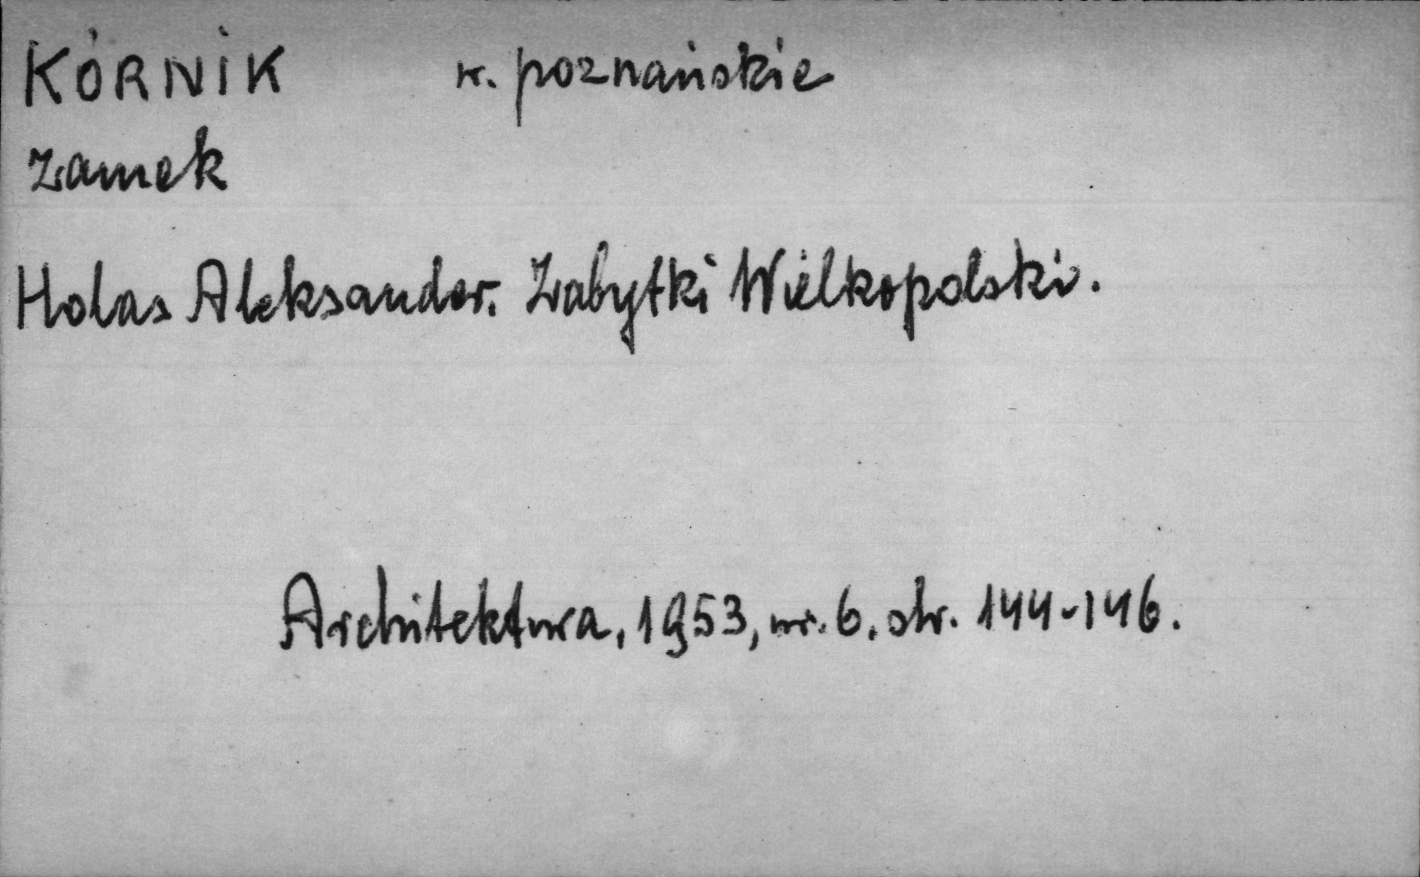 KÓRNIK w. poznańskie
Zamek
Holas Aleksander. Zabytki Wielkopolski.
Architektura, 1953, nr. 6. str. 144-146.